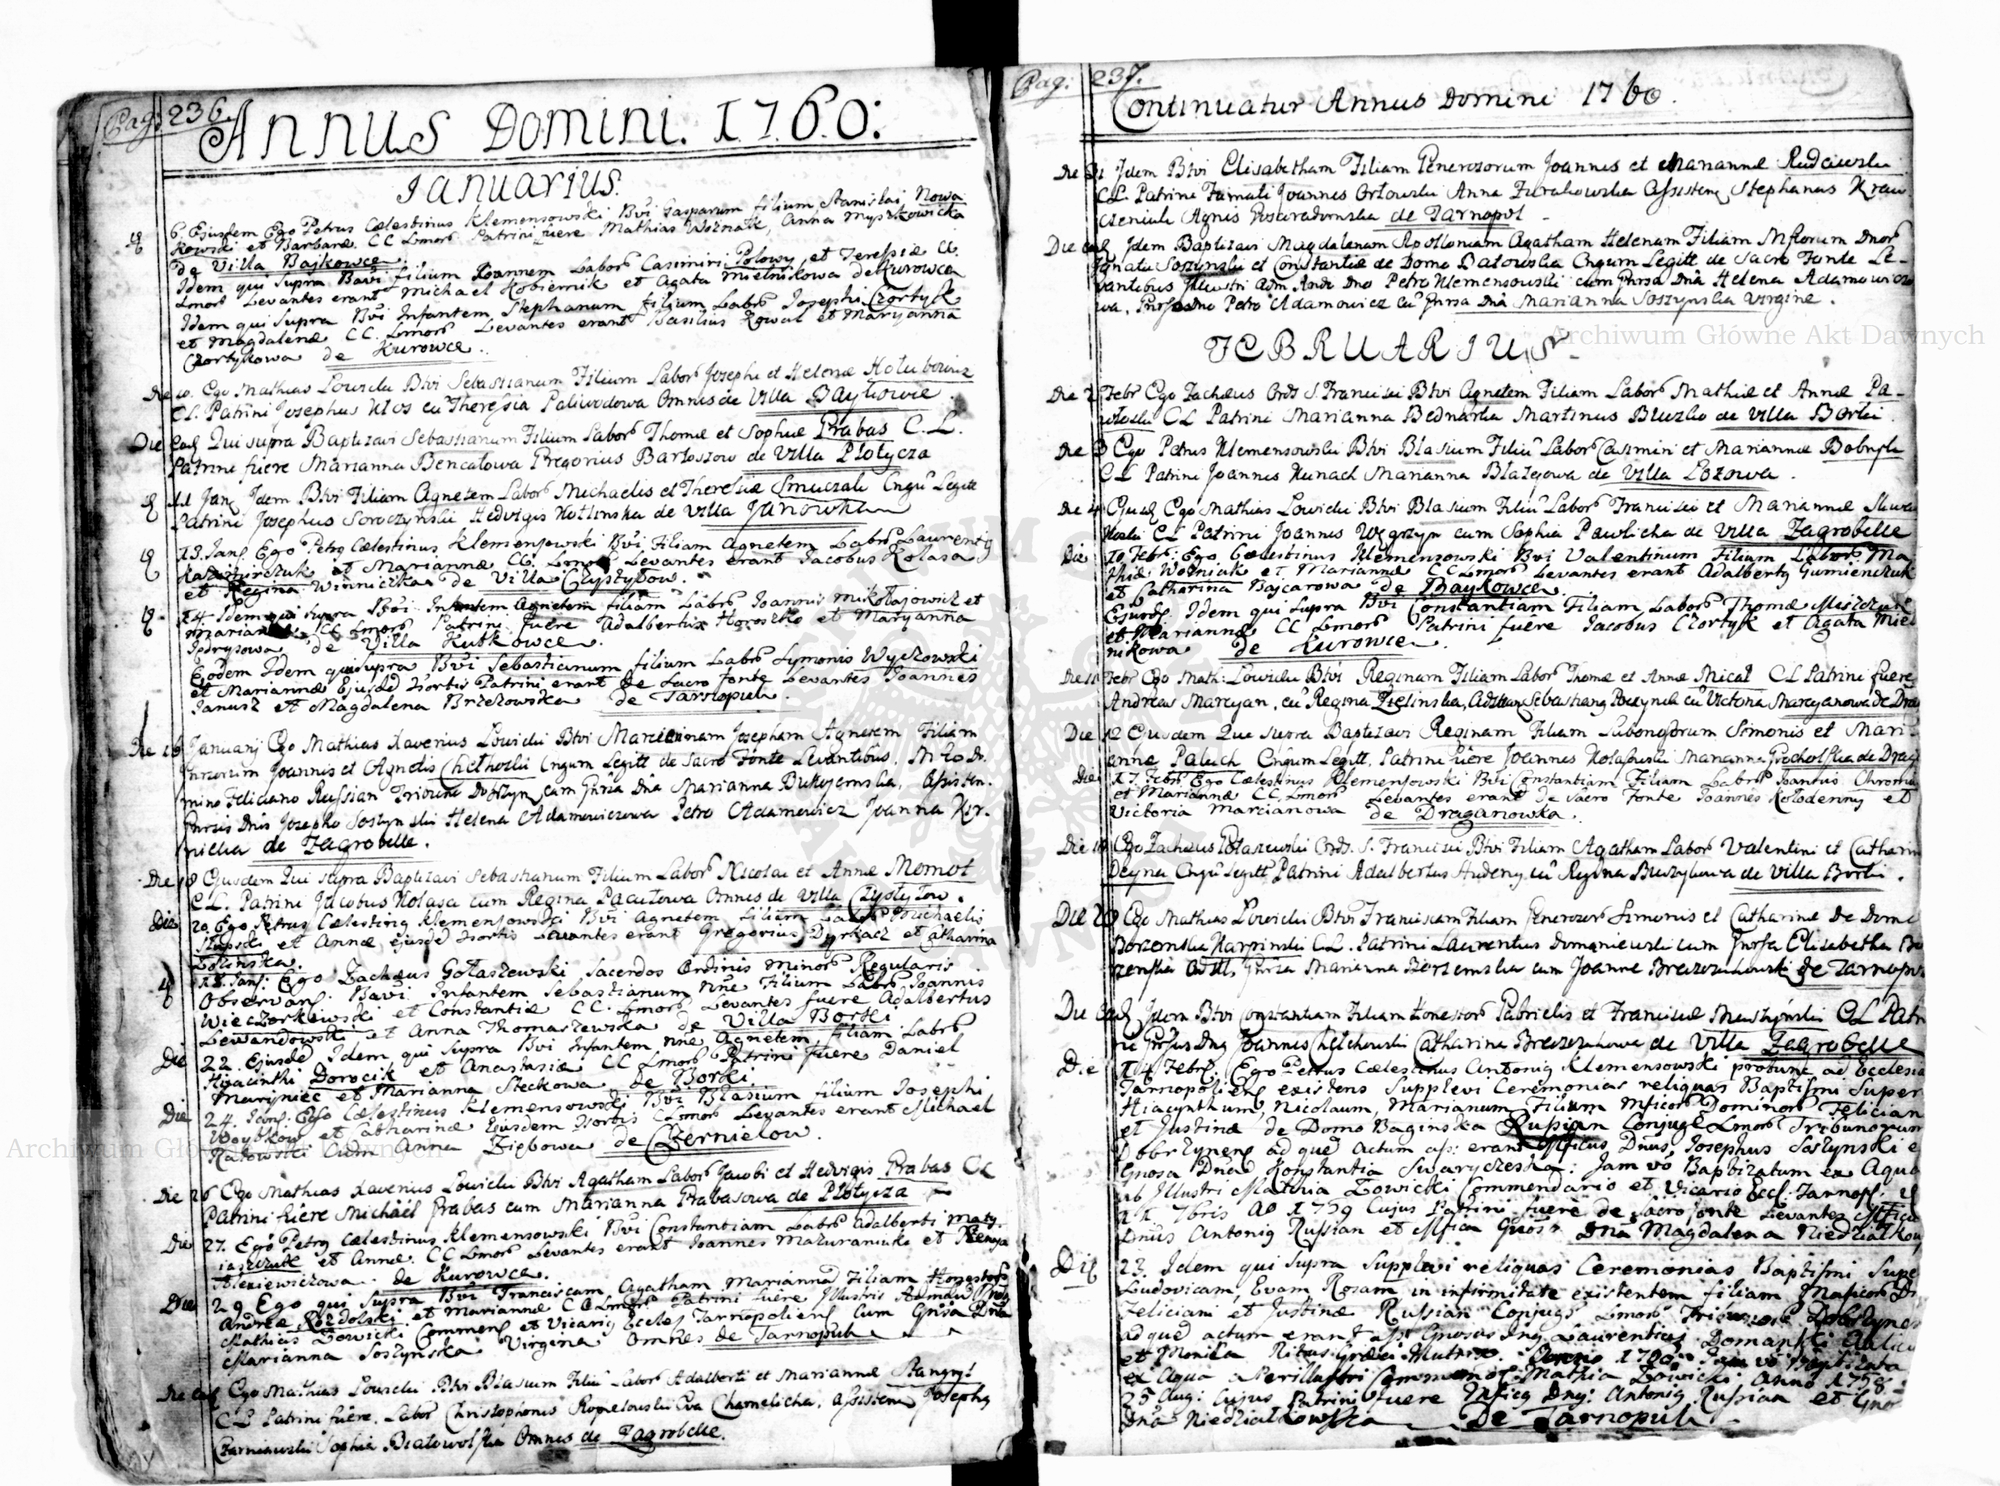 Pag: 236.
Annus Domini. 1760:
Ianuarius.
6. Ejusdem Ego Petrus Cælestinus Klemensowski Bvi Gasparum filium Stanislai Nowa
kowski et Barbaræ CC Lmor Patrini fuere Mathias Woznak, Anna Myszkowicka
de Villa Bajkowce.
Idem qui supra Bavi filium Joannem Labor Casimiri Polowy et Teresiæ CC.
Lmor Levantes erant Michael Kobiernik et Agata Mielnikowa de Kurowce
Idem qui supra Bvi Infantem Stephanum filium Labr Josephi Czortyk
et Magdalenæ CC. Lmor Levantes erant Basilius Kowal et Maryanna
Czortykowa de Kurowce.
Die 10. Ego Mathias Lowicki Btvi Sebastianum Filium Labor Josephi et Helenæ Holubowicz
CL. Patrini Josephus Klos cu Theresia Paliwodowa Omnis de Villa Baykowce.
Die ead Qui supra Baptizavi Sebastianum Filium Labor Thomæ et Sophiæ Grabas C.L.
Patrini fuere Marianna Bencalowa Gregorius Bartoszow de Villa Plotycza
11 Jan Idem Btvi Filiam Agnetem Labor Michaelis et Theresiæ Smuczali Cngu Legitt
Patrini Josephus Soroczynski Hedvigis Kotlinska de Villa Janowka
13. Jan. Ego Petrg Cælestinus Klemensowski Bvi Filiam Agnetem Labr Laurenty
Kazimirczuk et Mariannæ CC. Lmor Levantes erant Jacobus Kolasa
et Regina Winniczka de Villa Czystylow.
14. Idem qui supra Bvi Infantem Agnetem filiam Labr Joannis Mikołajowicz et
Mariannæ CC Lmor Patrini fuere Adalbertus Horoszko et Maryanna
Jędrysowa de Villa Kutkowce.
Eodem Idem qui supra Bvi Sebastianum filium Labr Symonis Wyczowski
et Mariannæ Ejusd Hortis Patrini erant de Sacro fonte Levantes Joannes
Janusz et Magdalena Brzezowska de Tarnopoli.
Die 16 Januarj Ego Mathias Xaverius Lowicki Btvi Mariannam Josepham Agnetem Filiam
Joannis et Agnetis Chelhoski Cngum Legitt de Sacro Fonte Levantibus. M D.
mino Feliciano Russian Tribuno Dobrzyn cum Gnsa Dna Marianna Dukojemska, Assisten.
Gnsis Dnis Josepho Soszynski Helena Adamowiczowa Petro Adamowicz Joanna Kir.
nicka de Zagrobelle.
Die 18 Ejusdem Qui supra Baptizavi Sebastianum Filium Labor Nicolai et Annæ Momot
CL. Patrini Jacobus Kolasa cum Regina Pacalowa Omnes de Villa Czystylow.
Die 20 Ego Petrus Cælesting Klemensowski Bvi Agnetem filiam Labr Michaelis
Slupski et Annæ ejusd Hortis Levantes erant Gregorius Dyrkacz et Catharina
Zolinska.
Jan. Ego Zachæus Gołaszewski Sacerdos Ordinis Minor Regularis
Observan. Bavi Infantem Sebastianum nne Filium Labr Joannis
Wieczorkowski et Constantiæ CC. Lmor Levantes fuere Adalbertus
Lewandowski et Anna Thomaszewska de Villa Borki
Die 22. Ejusd Idem qui Supra Bvi Infantem nne Agnetem filiam Labr
Hyacinthi Dorocik et Anastasiæ CC Lmor Patrini fuere Daniel
Maryniec et Marianna Steckowa de Borki.
Die 24. Jan. Ego Cælestinus Klemensowski Bvi Blasium filium Josephi
Woytkow et Catharinæ Ejusdem Hortis CC Lmor Levantes erant Michael
Rakowski cum Anna Ziębowa de Czernielow.
Die 26 Ego Mathias Xaverius Lowicki Btvi Agatham Labor Jacobi et Hedvigis Grabas CL
Patrini fuere Michael Grabas cum Marianna Grabasowa de Plotycza
Die 27. Ego Petrg Cælestinus Klemensowski Bvi Constantiam Labr Adalberti Maty-
iaszczuk et Annæ CC Lmor Levantes erant Joannes Mazuraniuk et Xenya
Alexiewiczowa. de Kurowce.
Die 29. Ego qui supra Bvi Franciscam Agatham Mariannā Filiam Honestor
Andreæ Rozdolski et Mariannæ CC Lmor Patrini fuere Illustris Admdu
Mathias Lowicki Commens et Vicarig Eccles Tarnopoliens Cum Gnsa Dna
Marianna Soszynska Virgine Omnes de Tarnopoli
Die ead Ego Mathias Lowicki Btvi Blasium Filiu Labor Adalberti et Mariannæ Stangryt
CL Patrini fuere, Labor Christophorus Rogulowski Eva Chamelicha, Assistens Josephg
Czarnowski Sophia Bialowolska Omnes de Zagrobelle.
Pag: 237.
Continuatur Annus Domini 1760.
Die 31 Idem Btvi Elisabetham Filiam Generosorum Joannis et Mariannæ Rudziewski
CL Patrini Famati Joannes Orlowski Anna Zurakowska Assisteng Stephanus Kraw
czeniuk Agnes Postaradowska de Tarnopol
Die ead Idem Baptizavi Magdalenam Apolloniam Agatham Helenam Filiam Mftorum Dnor
Ignatii Soszynski et Constantiæ de Domo Batowska Cngum Legitt de Sacro Fonte Le-
vantibus Illustri Adm Rndo Dno Petro Klemensowski cum Gnrsa Dna Helena Adamowiczo
wa, Gnrso Dno Petro Adamowicz cu Gnrsa Dna Marianna Soszynska Virgine.
FEBRUARIUS
Die 2 Febr Ego Zachæus Ords S. Francisci Btvi Agnetem Filiam Labor Mathiæ et Annæ Pa-
wloski CL Patrini Marianna Bednarka Martinus Bluzko de Villa Borki
Die 3 Ego Petrus Klemensowski Btvi Blasium Filiu Labor Casimiri et Mariannæ Bobryk
CL Patrini Joannes Kunach Marianna Blazejowa de Villa Lozowa.
Die 4 Ejusd Ego Mathias Lowicki Btvi Blasium Filiu Labor Francisci et Mariannæ Mura
Woski CL Patrini Joannes Węgrzyn cum Sophia Pawlicha de Villa Zagrobelle
Die 10 Febr. Ego Cælestinus Klemensowski Bvi Valentinum Filium Labor Ma
thiæ Wozniak et Mariannæ CC Lmor Levantes erant Adalbertg Gumienczuk
et Catharina Bajcarowa de Baykowce.
Ejusd. Idem qui supra Bvi Constantiam Filiam Labor Thomæ Mieszczuk
et Mariannæ CC Lmor Patrini fuere Jacobus Czortyk et Agata Miel
nikowa de Kurowce.
Die 11 Febr Ego Math: Lowicki Btvi Reginam Filiam Labor Thomæ et Annæ Micał CL Patrini fuere
Andreas Marcyan, cu Regina Zielinska, Adstan Sebastiang Poczynek cu Victoria Marcyanowa de Drag
Die 12 Ejusdem Qui supra Baptizavi Reginam Filiam Laboriosorum Simonis et Mari-
annæ Paluch Cngum Legitt, Patrini fuere Joannes Kolasinski Marianna Grocholska de Drag
Die 17. Febr. Ego Cælestinus Klemensowski Bvi Constantiam Filiam Labr Joannis Chroma
et Mariannæ CC. Lmor Levantes erant de Sacro Fonte Joannes Kołodenny et
Victoria Marcianowa de Draganowka.
Die 19 Ego Zachæus Gołaszewski Ords. S. Francisci Btvi Filiam Agatham Labor Valentini et Catharin
Deyna Cngu Legitt Patrini Adalbertus Hudeny cu Regina Buszykowa de Villa Borki.
Die 20 Ego Mathias Lowicki Btvi Franciscam Filiam Generosor Simonis et Catharinæ de Domo
Borzemska Karpinski CL. Patrini Laurentius Domaniewski cum Gnrsa Elisabetha Bo
rzemska Gnrsa Marianna Borzemska cum Joanne Brzezuchowski de Tarnopol
Die ead Idem Btvi Constantiam Filiam Honestor Gabrielis et Franciscæ Muszynski CL Patri
ni Gnrsus Dng Joannes Chelchowski Catharina Brzezuchowa de Villa Zagrobelle
Die 14 Febr. Ego Petrus Cælestinus Antonig Klemensowski probunc ad Ecclesia
Tarnopoliens existens Supplevi Ceremonias reliquas Baptismi Super
Hiacynthum, Nicolaum, Marianum Filium Mficor Dominor Felician
et Justinæ de Domo Baginska Russian Conjuge Lmor Tribunorum
Dobrzynens ad quē Actum ass: erant Mficus Dnus Josephus Soszynski e
Gnosa Dna Konstantia Swaryczeska: Jam vō Baptizatum ex Aqua
ab Illustri Mathia Łowicki Commendario et Vicario Eccl. Tarnopl.
7bris Ao 1759 Cujus Patrini fuere de Sacro fonte Levantes Mficu
Dnus Antonig Russian et Mfica Gnosa Dna Magdalena Niedzialkow
Die 23 Idem qui supra Supplevi reliquas Ceremonias Baptismi Supe
Ludovicam, Evam Rosam in infirmitate existentem filiam Mnficor D
Feliciani et Justinæ Russian Conjugū Lmor Tribunor Dobrzynen
ad quē actum erant Ass Gnosus Dng Laurentius Domanski
et Monica Ritus Græci Jam vō Baptizata
ex Aqua a Perillustri Commend Mathia Łowicki Anno 1758
25 Aug: Cujus Patrini fuere Mficg Dng: Antonig Russian et Gno
Dna Niedzialkowska De Tarnopoli
Archiwum Główne Akt Dawnych
Archiwum Główne Akt Dawnych